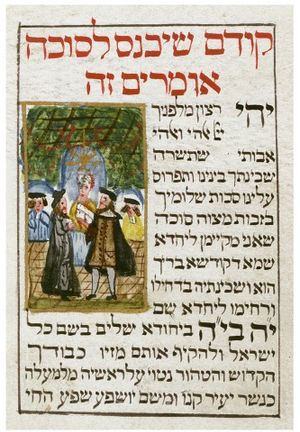 קודם שיכנס לסוכה
אומרים זה
יהי רצון מלפניך
אהי ואהי
אבותי שתשרה
שכינתך בינינו ותפרוס
עלינו סכות שלומיך
בזכות מצוה סוכה
שאנו מקיימן ליחדא
שמא דקודשא בריך
הוא ושכינתיה בדחילו
ורחימו ליחדא שם
י״ה בו״ה ביחודא שלים בשם כל
ישראל ולהקיף אותם מזיו כבודך
הקדוש והטהור נטוי על ראשיה מלמעלה
כנשר יעיר קנו ומשם יושפע שפע החי